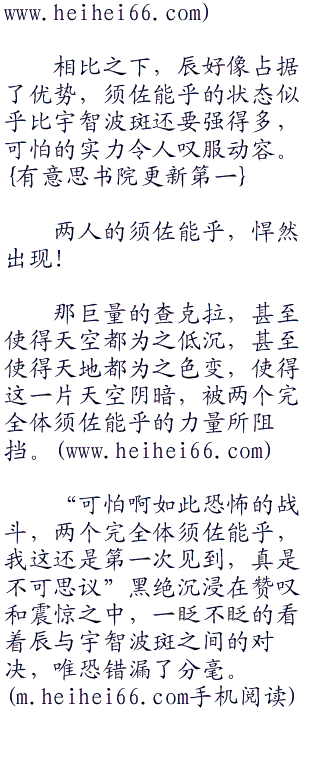 www.heihei66.com)
相比之下，辰好像占据
了优势，须佐能乎的状态似
乎比宇智波斑还要强得多，
可怕的实力令人叹服动容。
{有意思书院更新第一}
两人的须佐能乎，悍然
出现！
那巨量的查克拉，甚至
使得天空都为之低沉，甚至
使得天地都为之色变，使得
这一片天空阴暗，被两个完
全体须佐能乎的力量所阻
挡。(www.heihei66.com)
“可怕啊如此恐怖的战
斗，两个完全体须佐能乎，
我这还是第一次见到，真是
不可思议”黑绝沉浸在赞叹
和震惊之中，一眨不眨的看
着辰与宇智波斑之间的对
决，唯恐错漏了分毫。
(m.heihei66.com手机阅读)